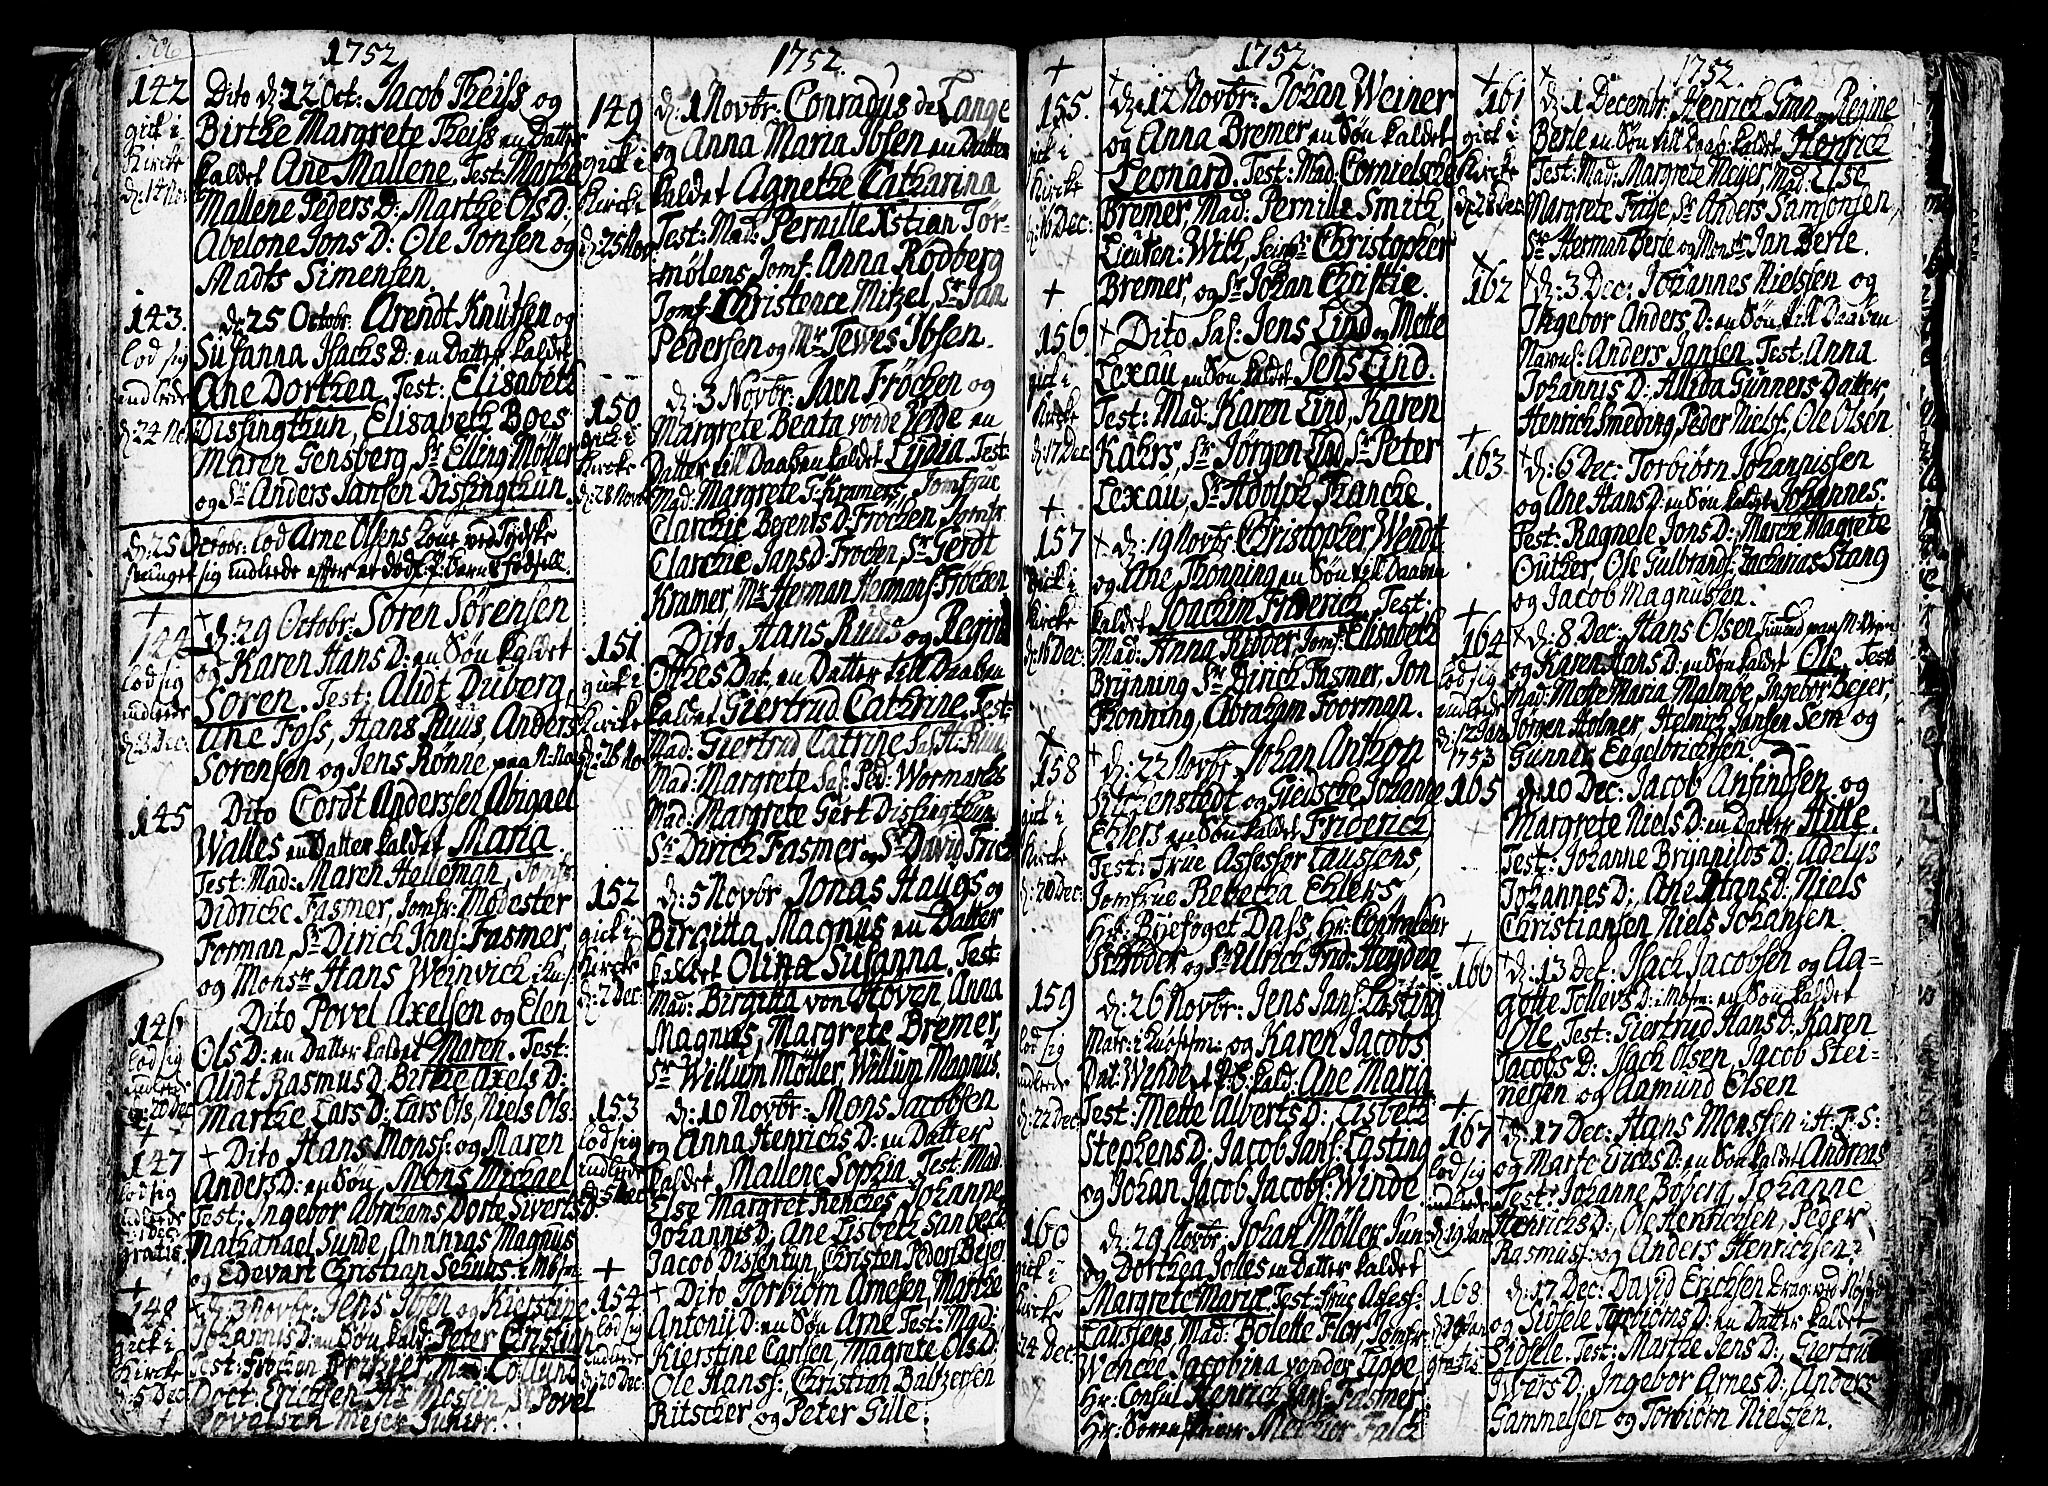 1752.
142
gick i
Kircke
Dito d: 22 Oct: Jacob Theiss og
Birthe Margrete Theiss en Datter
kaldet Ane Mallene. Test: Marthe
Mallene Peders D: Marthe Ols D:
Abelone Jons D: Ole Jonsen og
Madts Simensen.
143.
lod sig
indlede
d: 24 Nov
d: 25 Octobr: Arendt Knutsen og
Susanna Isachs D: en Datter kaldet
Ane Dorthea. Test: Elisabeth
Dissingthun, Elisabeth Boes
Maren Gensberg, Sr Elling Møller
og Sr Anders Jansen Dissingthun.
d: 25 Octobr: lod Arne Olsens Kone ved Tydske
sig indlede efter et dødf: Barns fødsell.
+
144
lod sig
indlede
d: 3 Dec:
+ d: 29 Octobr: Søren Sørensen
og Karen Hans D: en Søn kaldet
Søren. Test: Alidt Duberg,
Ane Foss, Hans Ruus, Anders
Sørensen og Jens Rønne paa
145
Dito Cordt Anderssen Abigael
Walles en Datter kaldet Maria.
Test: Mad: Maren Helleman, Jomfr
Didriche Fasmer, Jomfr: Mødester
Forman, Sr Dirich Jans: Fasmer,
og Monsr Hans Weinvich
146
lod sig
indlede
d: 20 Dec
Dito Povel Axelsen og Elen
Ols D: en Datter kaldet Maren. Test:
Alidt Rasmus D, Birthe Axels D:
Marthe Lars D: Lars Ols, Niels Ols:
+
147
lod sig
indlede
d: 1 Dec:
gratis.
+ Dito Hans Mons: og Maren
Anders D: en Søn, Mons Michael
Test: Ingebor Abrahams Dorte Siverts D.
Nathanael Sunde, Magnus
og Edevart Christian
+
148
gick i
Kircke
d: 5 Dec
+
+ d: 3 Novbr: Jens Ibsen og Kierstine
Johannis D: en Søn kald: Peter Christian
Test: Frøchen Mad: Collund
Doct: Erichsen Povel
1752.
149
gick i
Kircke
d: 25 Nov
d: 1 Novbr: Conradus de Lange
og Anna Maria Ibsen en Datter
kaldet Agnethe Catharina
Test: Mad: Pernille Xstian Tør-
mølens, Jomf: Anna Rødberg
Jomf: Christence Mitzel, Sr Jan
Pedersen og Mr Tewes Ibsen.
150
gick i
Kircke
d: 28 Novb
d: 3 Novbr: Jaen Frøchen og
Margrete Beata en
Datter till Daaben kaldet Lydia. Test:
Mad: Margrete G: Kramers, Jomfrue
Clarchie Berents D: Frochen, Jomfr
Clarchie Jans D: Frochen, Sr Gerdt
Kramer, Mr Herman Hermans Frøchen
151
gick i
Kircke
d: 25 No
Dito Hans Ruus og Regina
Othes Dat: en Datter till Daaben
kaldet Giertrud Cathrine. Test:
Mad: Giertrud Catrine Sal: H: Ruus
Mad: Margrete Sal: Ped: Wormarchs
Mad: Margrete Gert Dissingthun
Sr Dirich Fasmer og Sr David Frich
152
gick i
Kircke
d: 2 Dec:
d: 5 Novbr Jonas Haugs og
Birgitta Magnus en Datter
kaldet Olina Susanna. Test:
Mad: Birgitta von Hoven, Anna
Magnus, Margrete Bremer,
Sr Willum Møller, Willum Magnus.
153
lod sig
indlede
d: 5 Dec
d: 10 Novbr: Mons Jacobsen
og Anna Henrichs D: en Datter
kaldet Mallene Sophia. Test: Mad
Else Margret Renches, Johanne
Johannis D:, Ane Lisbeth Sanbech
Jacob Disjentun, Christen Peders Bejer
+
154
lod sig
indlede
d: 20 Dec:
+ Dito Torbiørn Arnesen, Marthe
Antonii D: en Søn Arne Test: Mad:
Kierstine Carlsen, Magrete Ols D:
Ole Hans: Christian Baltzersen
Ritscher og Peter Gille.
1752.
+
155.
gick i
Kircke
d: 16 Dec:
+ d: 12 Novbr: Johan Weiner
og Anna Bremer en Søn kaldet
Leonard. Test: Mad: Cornielsche
Bremer, Mad: Pernille Smith,
Lieuten: With, Christopher
Bremer, og Sr Johan Christie.
+
156
gick i
Kircke
d: 17 Dec
+ Dito Sal: Jens Lind og Mette
Lexau en Søn kaldet Jens Lind.
Test: Mad: Karen Lind, Karen
Kahrs, Sr Jørgen Lind, Sr Peter
Lexau, Sr Adolph Francke.
+
157
gick i
Kircke
d: 16 Dec:
+ d: 19 Novbr: Christopher Wendt
og Ane Thonning en Søn till Daaben
kaldet Joachim Friderich. Test:
Mad: Anna Ridder, Jomf: Elisabeth
Brynning Sr Dirich Fasmer, Jon
Thonning, Abraham Foorman.
+
158
gick i
Kircke
d: 20 Dec:
+ d: 22 Novbr: Johan Anthon
og Giedsche Johanne
Ehlers en Søn kaldet Friderich
Test: Frue Assessor Taussens,
Jomfrue Rebecka Ehlers,
Hr: Byefoget Dass, Hr: Controlleur
Schrøder og Sr Ulrich Frid: Heyden
159
lod sig
indlede
d: 22 Dec:
d: 26 Novbr: Jens Jans: Lasting
Matr: og Karen Jacobs
Dat: Winde kald: Ane Maria
Test: Mette Alberts D: Lisbeth
Stephens D: Jacob Jans: Lasting
og Johan Jacob Jacobs: Winde
160
gick i
Kircke
24 Dec:
d: 29 Novbr: Johan Møller Jun:
og Dorthea Jolles en Datter kaldet
Margrete Marie. Test: Frue Assess:
Taussens, Mad: Bolette Flor, Jomfr
Wenche Jacobina von der Lippe,
Hr: Consul Henrich Jans: Fasmer,
Hr: Melchior Falch
1752.
+
161
gick i
Kircke
d: 28 Dec
+ d: 1 Decembr: Henrich Gran og Regine
Berle en Søn till Daab: kaldet Henrich
Test: Mad: Margrete Meyer, Mad: Else
Margrete Fage, Sr Anders Samsonsen,
Sr Herman Berle og Monsr Jan Berle.
+
162
+ d: 3 Dec: Johannes Nielsen og
Ingebor Anders D: en Søn till Daaben
Navnl: Anders Jansen. Test: Anna
Johannis D: Allida Gunners Datter,
Henrich Smeding, Peder Niels:, Ole Olsen
+
163
+ d: 6 Dec: Torbiørn Johannissen
og Ane Hans D: en Søn kaldet Johannes.
Test: Ragnele Jons D: Marche Magrete
Outher, Ole Gulbrands: Zacharias Stang
og Jacob Magnussen.
+
164
lod sig
indlede
d: 12 Jan
1753
+ d: 8 Dec: Hans Olsen
og Karen Hans D: en Søn kaldet Ole. Test:
Mad: Mette Maria Malmøe, Ingebor Bejer,
Jørgen Holmer, Helmich Jansen Sem og
Gunner Engelbrichtsen
165
d: 10 Dec: Jacob Ansingsen og
Margrete Niels D: en Datter Hille.
Test: Johanne Brynnilds D: Adelus
Johannes D:, Ane Hans D: Niels
Christiansen Niels Johansen.
+
166
+ d: 13 Dec: Isach Jacobsen og Aa-
gotte Tollevs D: en Søn kaldet
Ole. Test: Giertrud Hans D: Karen
Jacobs D: Isach Olsen, Jacob Stei-
nesen og Aamund Olsen
+
167
lod sig
indlede
d: 19 Jan
+ d: 17 Dec: Hans Monssen i H: P: S:
og Marte Erichs D: en Søn kaldet Andreas
Test: Johanne Boberg, Johanne
Henrichs D:, Ole Henrichsen, Peder
Rasmus: og Anders Henrichsen.
168
gratis
d: 17 Dec: David Erichsen
og Sidsele Torbiørns D: en Datter kaldet
Sidsele. Test: Marthe Jens D:, Giertrud
Ivers D:, Ingebor Arnes D:, Anders
Gammelsen og Torbiørn Nielsen.